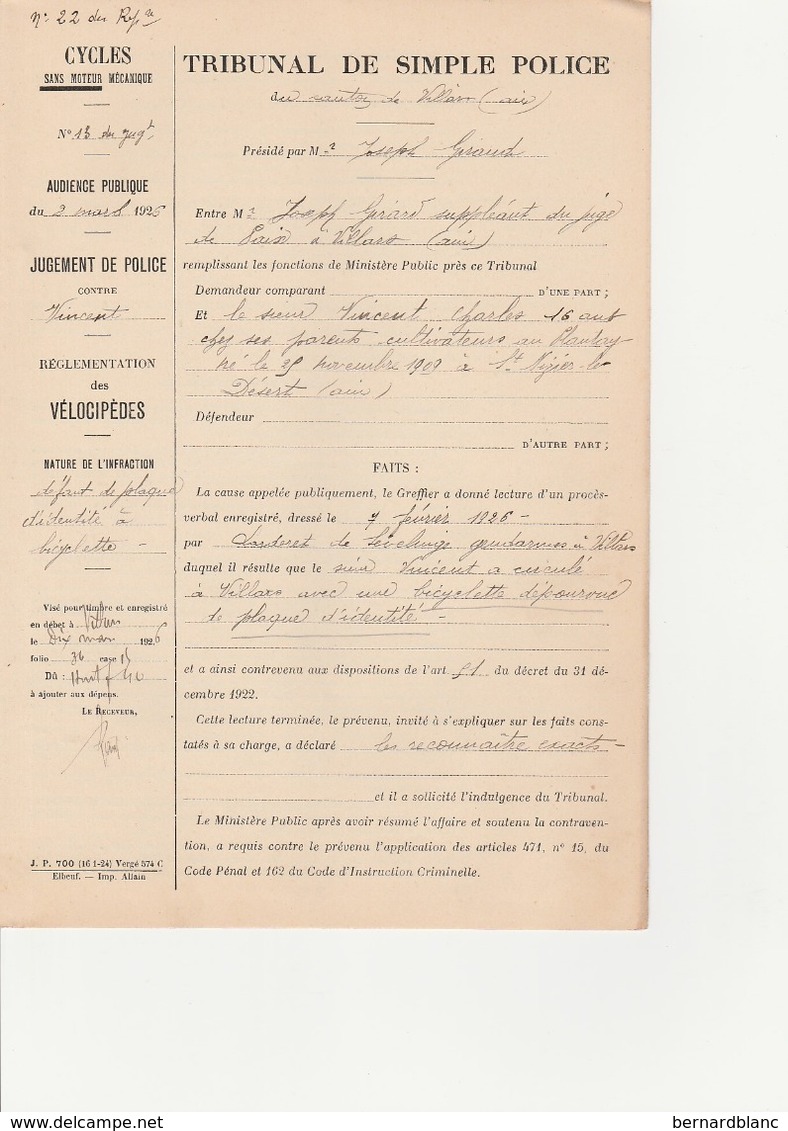 N° 22 du Rep re
CYCLES
SANS MOTEUR MÉCANIQUE
N° 13 du jugt
AUDIENCE PUBLIQUE
du 2 mars 1926
JUGEMENT DE POLICE
CONTRE
Vincent
RÉGLEMENTATION
des
VÉLOCIPÈDES
NATURE DE L'INFRACTION
défaut de plaque
d'identité à
bicyclette –
Visé pour timbre et enregistré
en débet à Villars
le Dix mars 1926
folio 36 case 15
Dû : huit f 40
à ajouter aux dépens.
LE RECEVEUR,
J. P. 700 (16 1-24) Vergé 574 C
Elbeuf. — Imp. Allain
TRIBUNAL DE SIMPLE POLICE
du canton de Villars (ain)
Présidé par M r Joseph Giraud
Entre M r Joseph Girard suppléant du juge
de Paix à Villars (ain)
remplissant les fonctions de Ministère Public près ce Tribunal
Demandeur comparant D'UNE PART ;
Et le sieur Vincent Charles 16 ans
chez ses parents cultivateurs au Plantay
né le 25 novembre 1909 à St Nizier-le-
Désert (ain)
Défendeur
D'AUTRE PART ;
FAITS :
La cause appelée publiquement, le Greffier a donné lecture d'un procès-
verbal enregistré, dressé le 7 février 1926 –
par de gendarmes à Villars
duquel il résulte que le sieur Vincent a circulé
à Villars avec une bicyclette dépourvue
de plaque d'identité –
et a ainsi contrevenu aux dispositions de l'art 51 du décret du 31 dé-
cembre 1922.
Cette lecture terminée, le prévenu, invité à s'expliquer sur les faits cons-
tatés à sa charge, a déclaré les reconnaître exacts –
et il a sollicité l'indulgence du Tribunal.
Le Ministère Public après avoir résumé l'affaire et soutenu la contraven-
tion, a requis contre le prévenu l'application des articles 471, n° 15, du
Code Pénal et 162 du Code d'Instruction Criminelle.
delcampe.net
bernardblanc